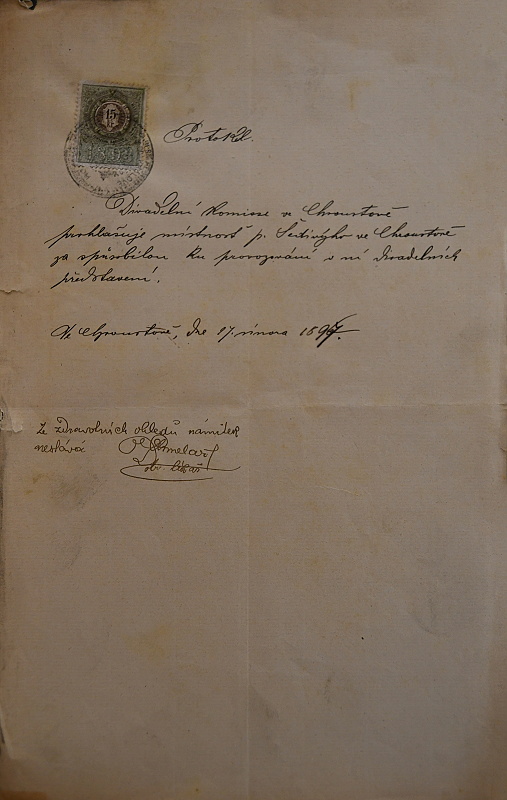 15
Protokol.
Divadelní komisse ve Chroustově
prohlašuje místnost p. ve Chroustově
za spůsobilou ku provozování v ní divadelních
představení.
Ve Chroustově, dne 17. února 1897.
Ze zdravotních ohledů námitek
nestává
obv. lékař